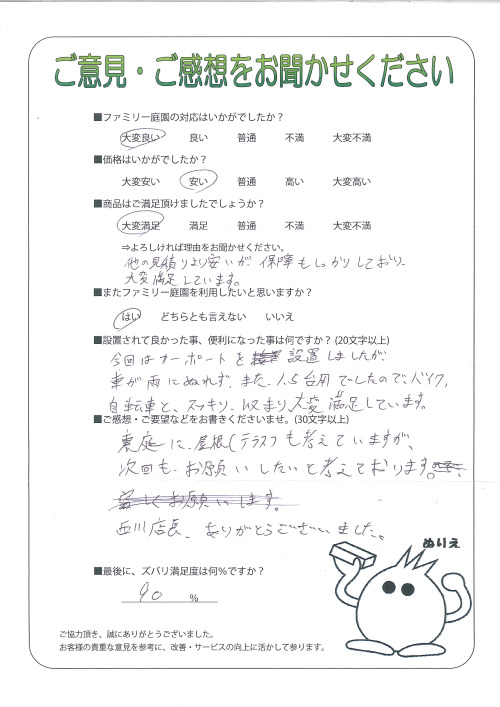 ご意見・ご感想をお聞かせください
■ファミリー庭園の対応はいかがでしたか？
大変良い 良い 普通 不満 大変不満
■価格はいかがでしたか？
大変安い 安い 普通 高い 大変高い
■商品はご満足頂けましたでしょうか？
大変満足 満足 普通 不満 大変不満
⇒よろしければ理由をお聞かせください。
他の見積りより安いが、保障もしっかりしており、
大変満足しています。
■またファミリー庭園を利用したいと思いますか？
はい どちらとも言えない いいえ
■設置されて良かった事、便利になった事は何ですか？(20文字以上)
今回はカーポートを 設置しましたが、
車が雨にぬれず、また、1.5台用でしたので、バイク、
自転車と、スッキリ、収まり、大変満足しています。
■ご感想・ご要望などをお書きくださいませ。(30文字以上)
裏庭に、屋根(テラス)も考えていますが、
次回も、お願いしたいと考えております。
お願いします。
西川店長、ありがとうございました。
ぬりえ
■最後に、ズバリ満足度は何％ですか？
90 %
ご協力頂き、誠にありがとうございました。
お客様の貴重な意見を参考に、改善・サービスの向上に活かして参ります。